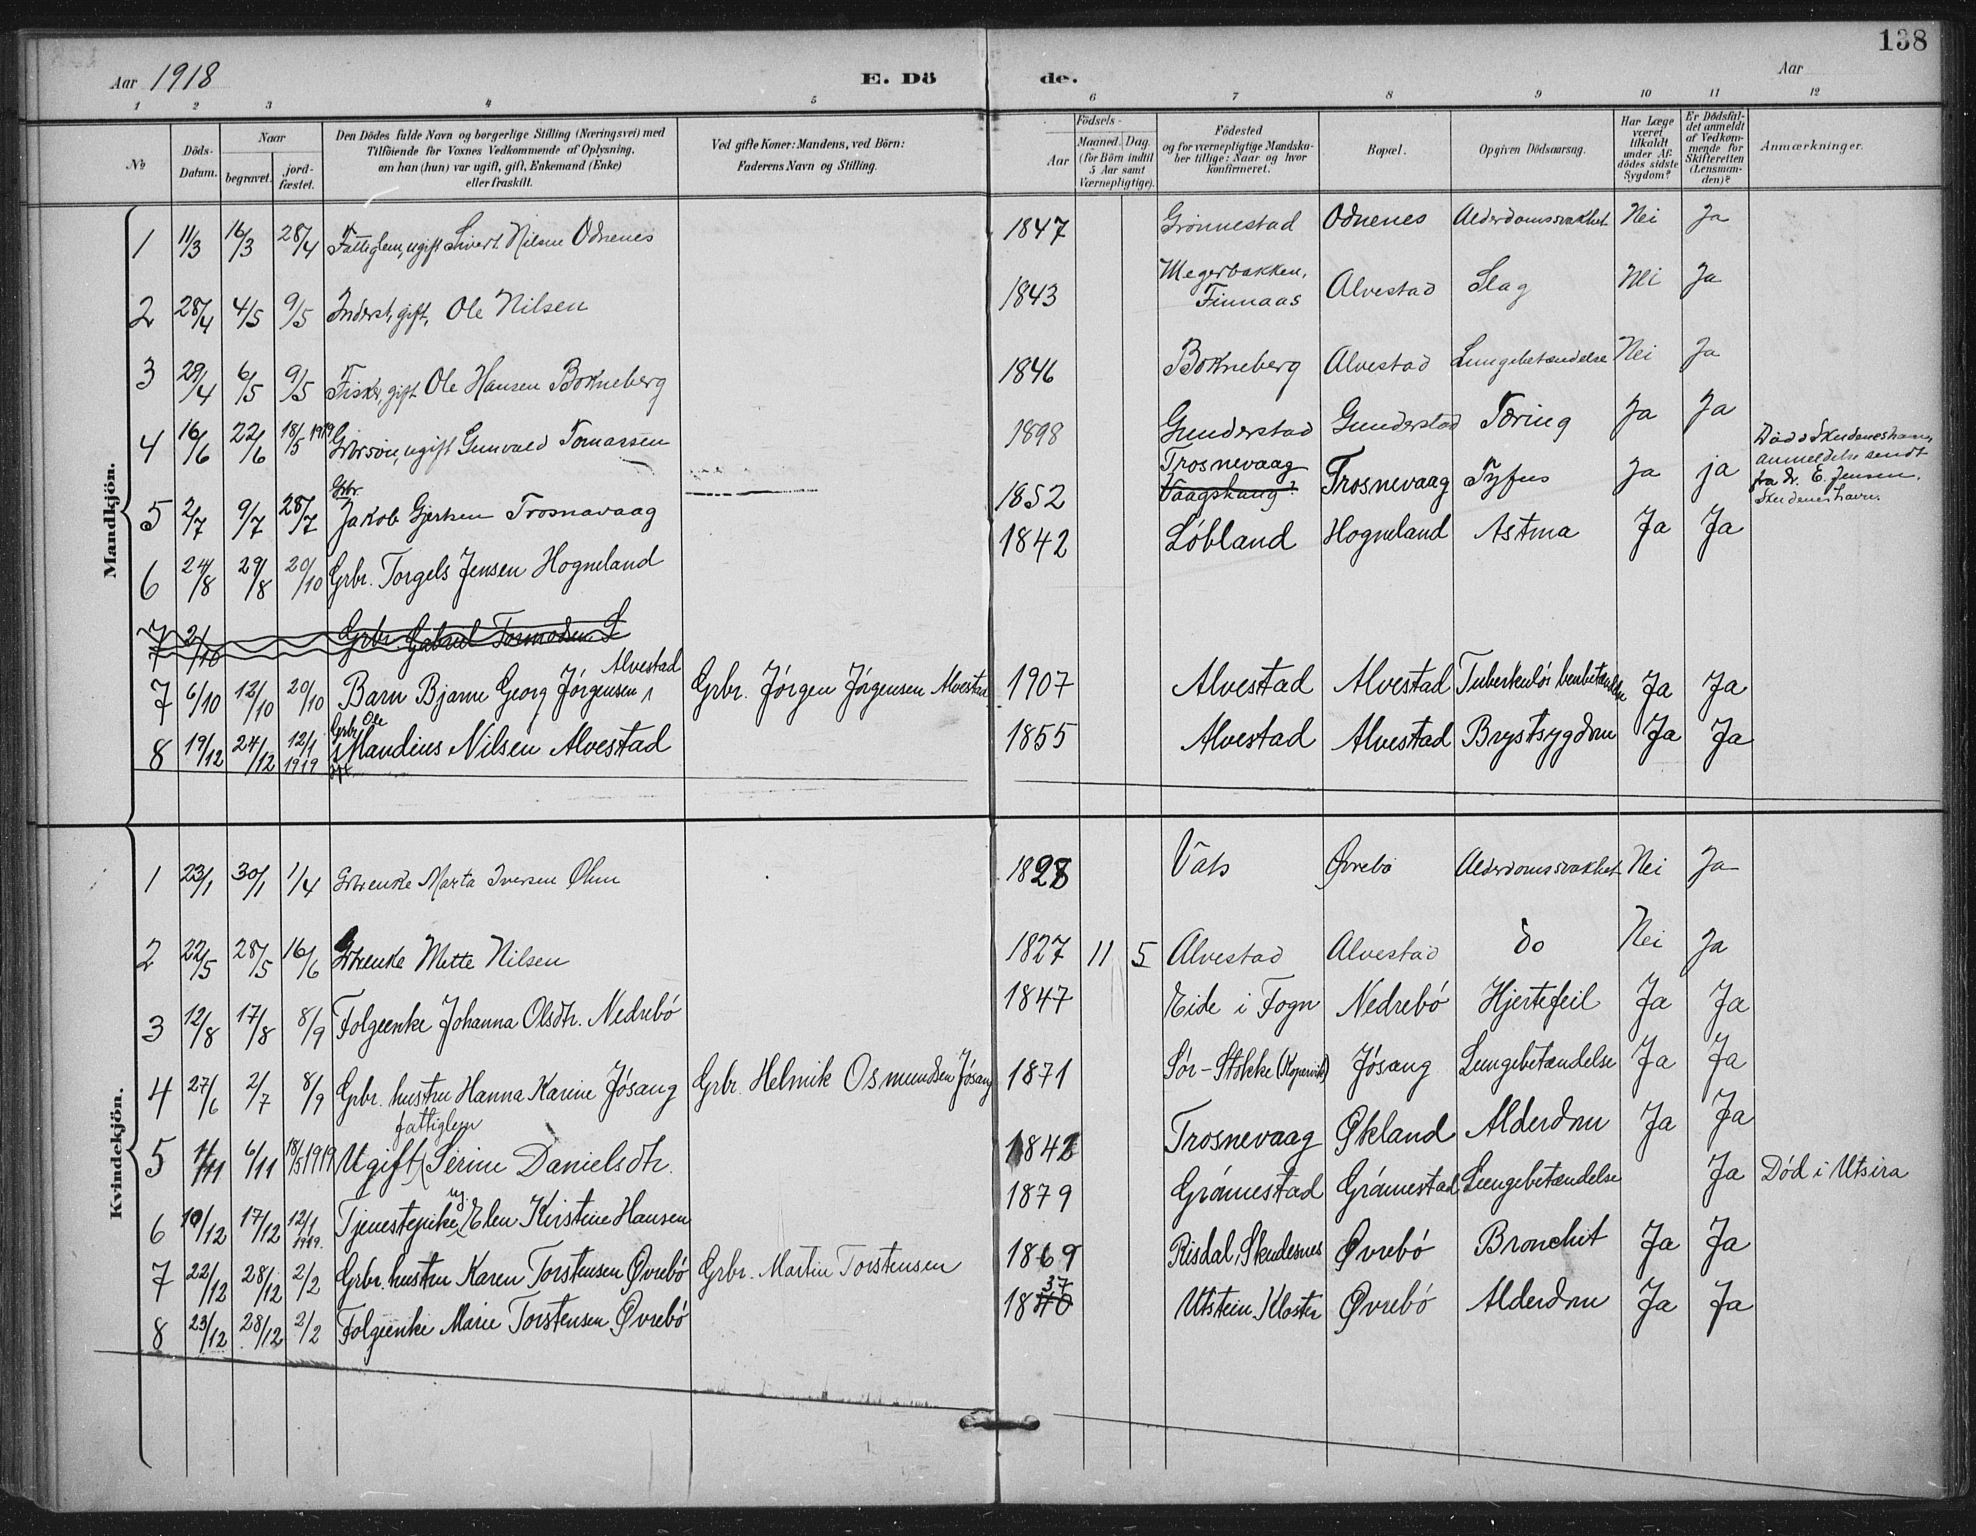 138
Aar 1918 E. Dö de. Aar
1 2 3 4 5 6 7 8 9 10 11 12
No
Döds-
Datum.
Naar
begravet.
jord-
fæstet.
Den Dödes fulde Navn og borgerlige Stilling (Næringsvei) med
Tilföiende for Voxnes Vedkommende af Oplysning,
om han (hun) var ugift, gift, Enkemand (Enke)
eller fraskilt.
Ved gifte Koner: Mandens, ved Börn:
Faderens Navn og Stilling.
Födsels-
Aar
Maaned. Dag.
(for Börn indtil
5 Aar samt
Værnepligtige).
Födested
og for værnepligtige Mandska-
ber tillige: Naar og hvor
konfirmeret.
Bopæl.
Opgiven Dödsaarsag.
Har Læge
været
tilkaldt
under Af-
dödes sidste
Sygdom?
Er Dödsfal-
det anmeldt
af Vedkom-
mende for
Skifteretten
(Lensman-
den)?
Anmærkninger.
Mandkjön.
1 11/3 16/3 28/4 Fattiglem, ugift Sivert Nilsen Odnenes 1847 Grönnestad Odnenes Alderdomssvakhet Nei Ja
2 28/4 4/5 9/5 Inderst, gift, Ole Nilsen 1843 Megerbakken, Finnaas Alvestad Slag Nei Ja
3 29/4 6/5 9/5 Fisker, gift Ole Hansen Bokneberg 1846 Bokneberg Alvestad Lungebetændelse Nei Ja
4 16/6 22/6 18/5 1919 Grbrsön, ugift Gunvald Tomassen 1898 Gunderstad Gunderstad Tæring Ja Ja
5 2/7 9/7 28/7 Grbr. Jakob Gjertsen Trosnavaag 1852 Trosnevaag Trosnevaag Tyfus Ja ja
Död i Skudeneshavn,
anmeldelse sendt
fra dr. E. Jensen,
Skudeneshavn.
6 24/8 29/8 20/10 Grbr. Torgels Jensen Hogneland 1842 Løbland Hogneland Astma Ja Ja
7 2/10 Grbr. Gabriel
7 6/10 12/10 20/10 Barn Bjarne Georg Jörgensen Alvestad Grbr. Jörgen Jörgensen Alvestad 1907 Alvestad Alvestad Tuberkulös benbetændelse Ja Ja
8 19/12 24/12 12/1 1919 Grbr. Ole Mandius Nilsen Alvestad 1855 Alvestad Alvestad Brystsygdom Ja Ja
Kvindekjön.
1 23/1 30/1 1/4 Grbrenke Marta Iversen 1828 Vats Øvrebö Alderdomssvakhet Nei Ja
2 22/5 28/5 16/6 Grbrenke Mette Nilsen 1827 11 5 Alvestad Alvestad do Nei Ja
3 12/8 17/8 8/9 Folgeenke Johanna Olsdtr. Nedrebö 1847 Eide i Fogn Nedrebö Hjertefeil Ja Ja
4 27/6 2/7 8/9 Grbr. hustru Hanna Karine Jösang Grbr. Helmik Osmundsen Jösang 1871 Sör-Stokke (Kopervik) Jösang Lungebetændelse Ja Ja
5 1/11 6/11 18/5 1919 Ugift fattiglem Serine Danielsdtr. 1842 Trosnevaag Økland Alderdom Ja Ja
6 10/12 17/12 12/1 1919. Tjenestepike, ug. Elen Kirstine Hansen 1879 Grönnestad Grönnestad Lungebetændelse Ja Död i Utsira
7 22/12 28/12 2/2 Grbr. hustru Karen Torstensen Øvrebö Grbr. Martin Torstensen 1869 Risdal, Skudesnes Øvrebö Bronchit Ja Ja
8 23/12 28/12 2/2 Folgeenke Marie Torstensen Øvrebö 1840 37 Utstein Kloster Øvrebö Alderdom Ja Ja